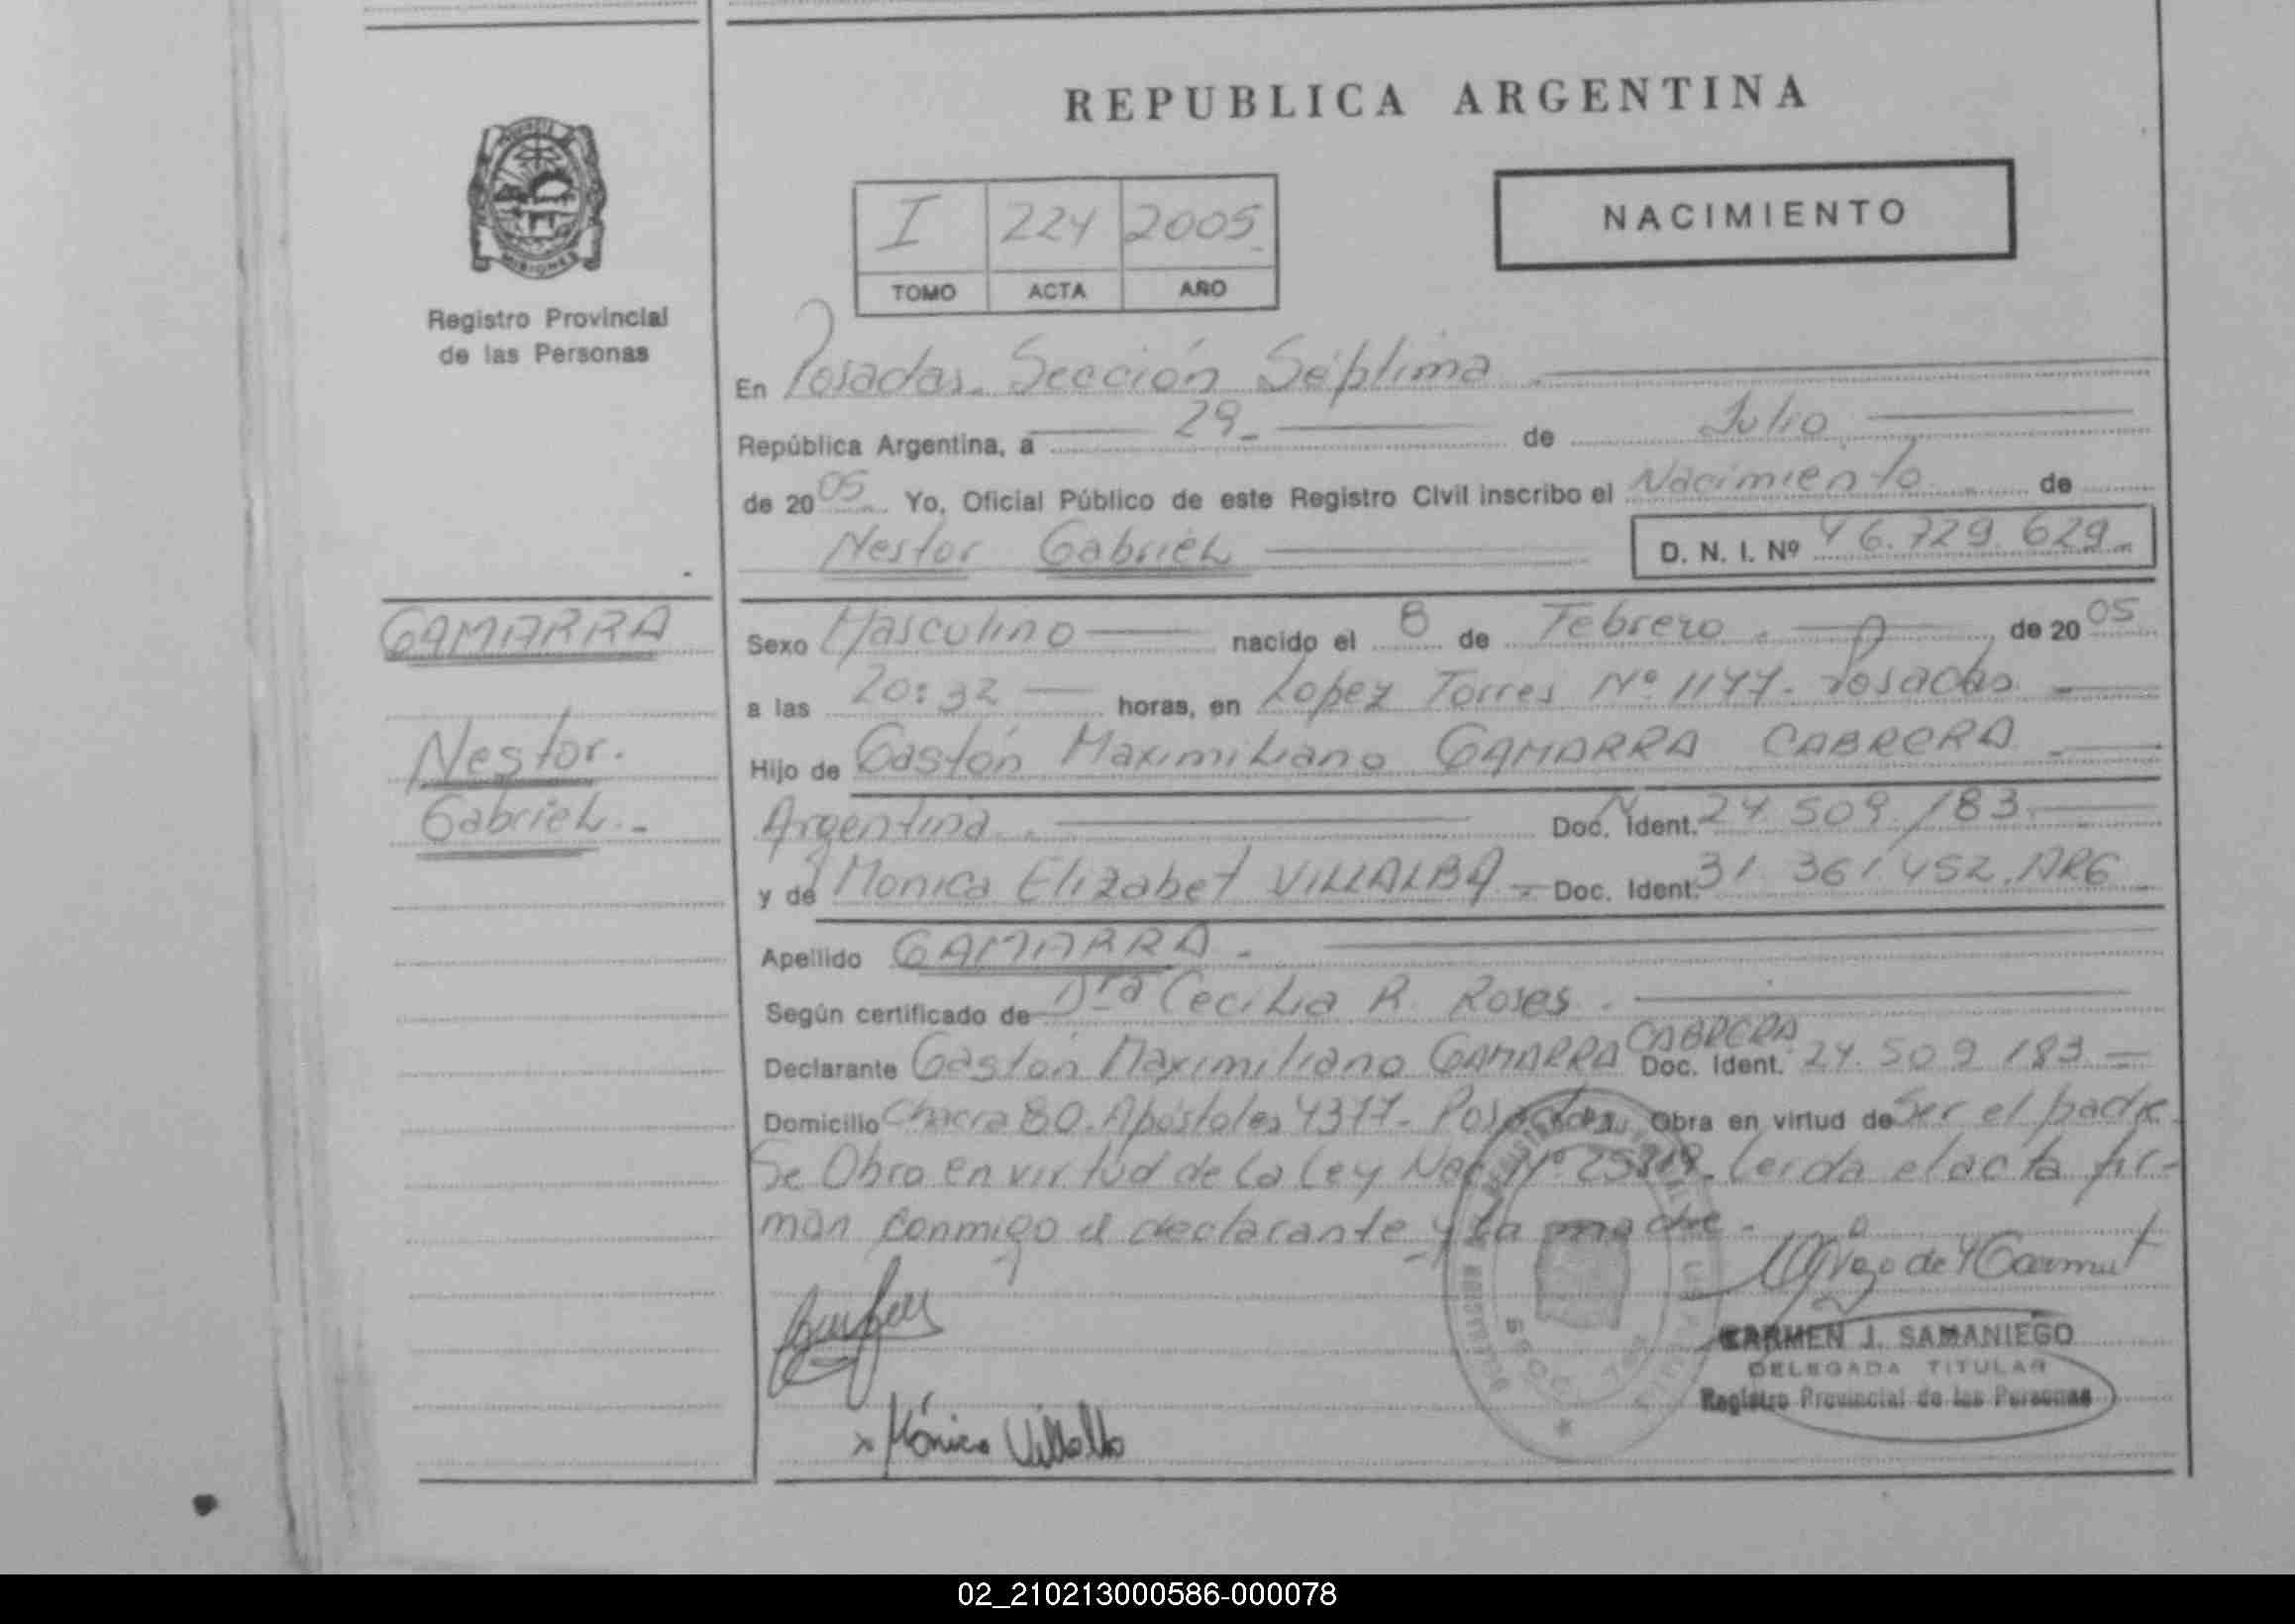 REPUBLICA ARGENTINA
NACIMIENTO
I 224 2005
TOMO ACTA AÑO
MISIONES
Registro Provincial
de las Personas
En Posadas. Sección Séptima
República Argentina, a 29 de Julio
de 2005 Yo, Oficial Público de este Registro Civil inscribo el Nacimiento de
Nestor Gabriel D. N. I. Nº 46.729.629
GAMARRA
Nestor.
Gabriel.-
Sexo Masculino nacido el 8 de Febrero de 2005
a las 20:32 horas, en Lopez Torres Nº 1177. Posadas
Hijo de Gastón Maximiliano GAMARRA CABRERA
Argentina Doc. Ident. 24.509.183
y de Monica Elizabet VILLALBA Doc. Ident. 31.361.452. ARG
Apellido GAMARRA.
Según certificado de Dra Cecilia R. Roses.
Declarante Gastón Maximiliano GAMARRA CABRERA Doc. Ident. 24.509.183
Domicilio Chacra 80. Apóstoles 4377- Posadas. Obra en virtud de Ser el padre.
Se Obra en virtud de la Ley Nac. Nº Leida el acta fir-
man conmigo el declarante y la madre.
CARMEN J. SAMANIEGO
DELEGADA TITULAR
Registro Provincial de las Personas
x Mónica Villalba
02_210213000586-000078